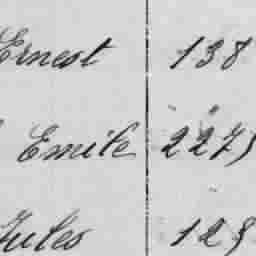 Ernest 138
Emile 2275
Jules 128